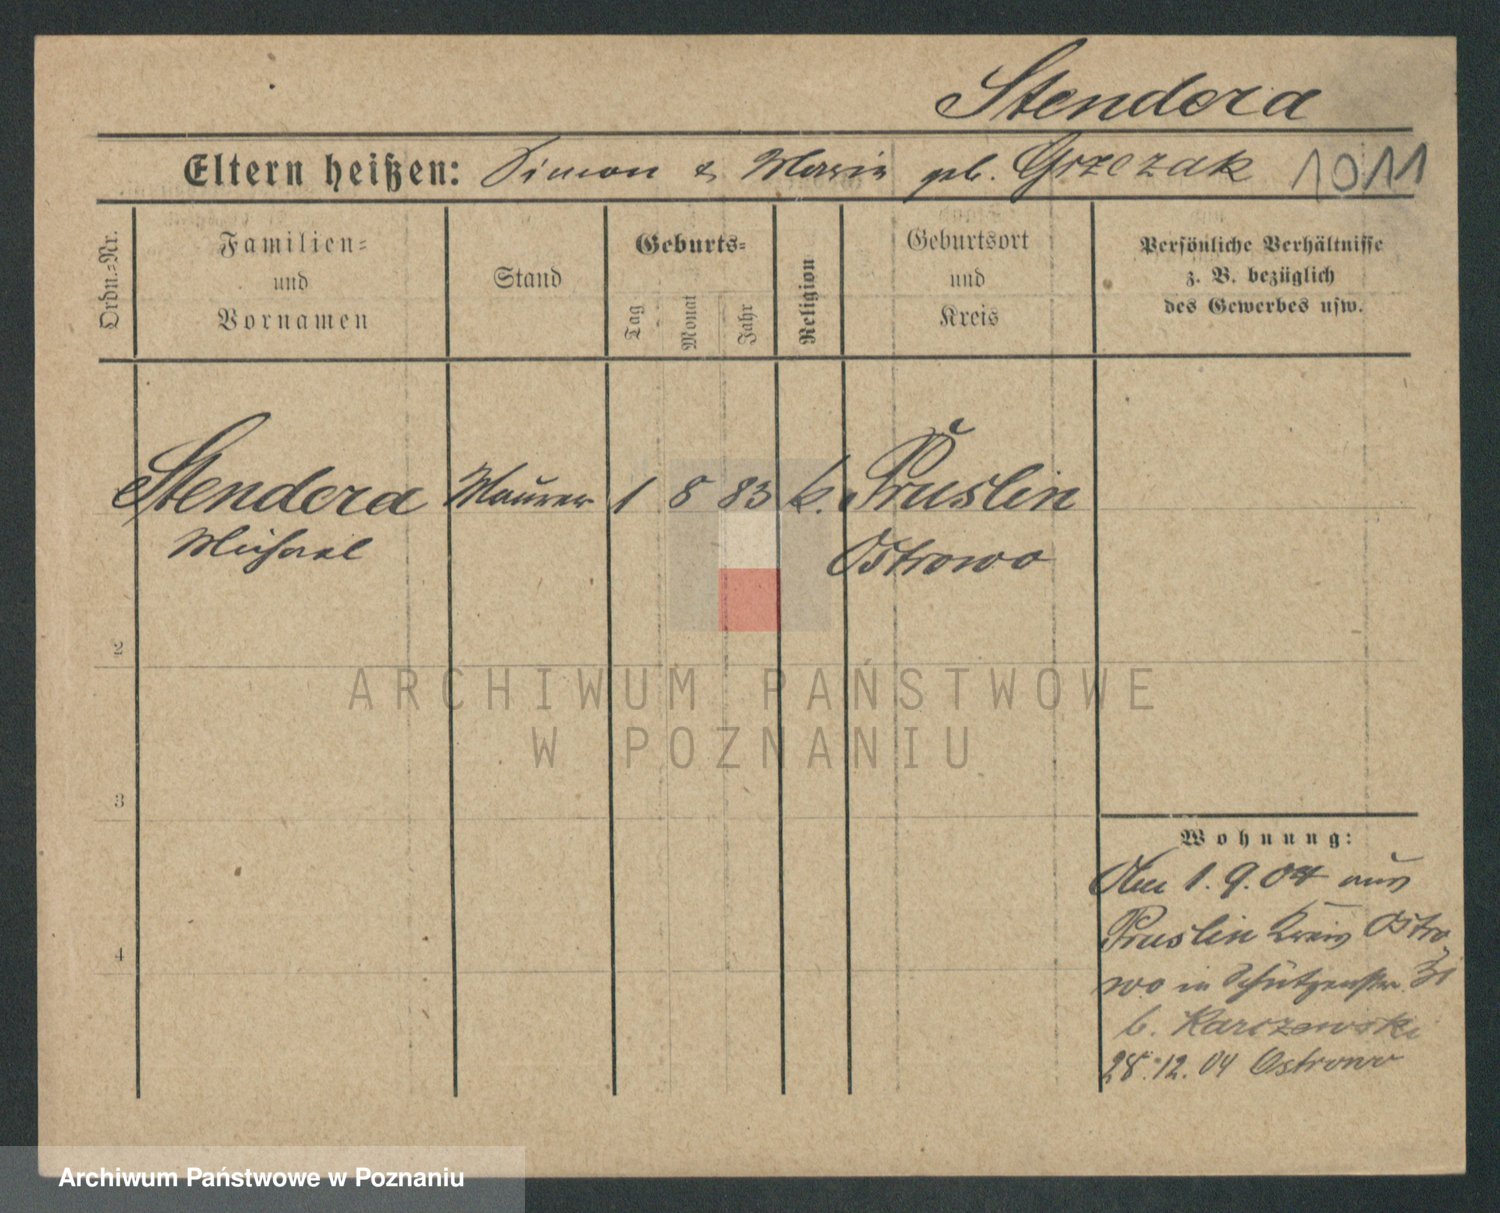 Stendera
Eltern heißen: Simon & Marie geb. Grzezak 1011
Ordn.=Nr.
Familien=
und
Vornamen
Stand
Geburts=
Tag
Monat
Jahr
Religion
Geburtsort
und
Kreis
Persönliche Verhältnisse
z. B. bezüglich
des Gewerbes usw.
Stendera Maurer 1 8 83 k. Pruslin
Michael Ostrowo
2
ARCHIWUM PAŃSTWOWE
W POZNANIU
3
4
Wohnung:
Am 1.9.04 aus
Pruslin Kreis Ostro-
wo in Schützenstr. 31
b. Karczewski
28.12.04 Ostrowo
Archiwum Państwowe w Poznaniu